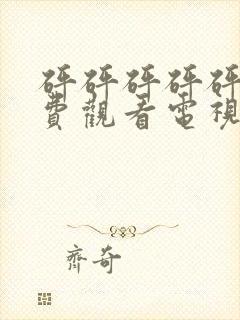 砰砰砰砰砰
費觀看電視
齊奇